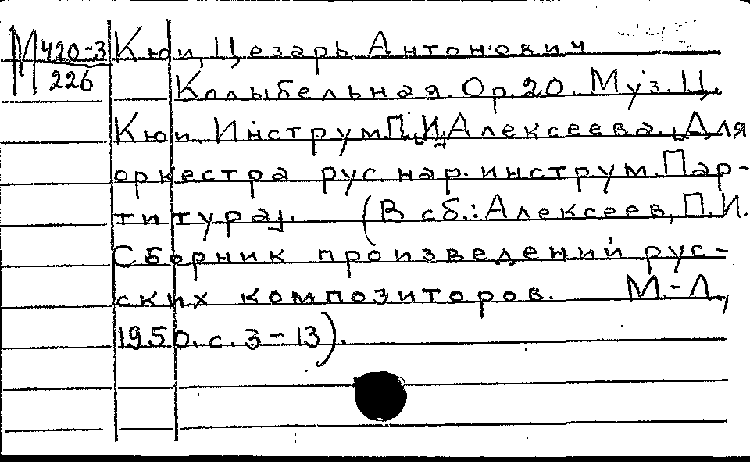 М 420-3
226
Кюи, Цезарь Антонович
Колыбельная. Ор.20. Муз. Ц.
Кюи. Инструм. П.И. Алексеева. [Для
оркестра рус. нар. инструм. Пар-
титура]. (В сб.: Алексеев, П.И.
Сборник произведений рус-
ских композиторов. М.-Л.,
1950. с. 3-13).